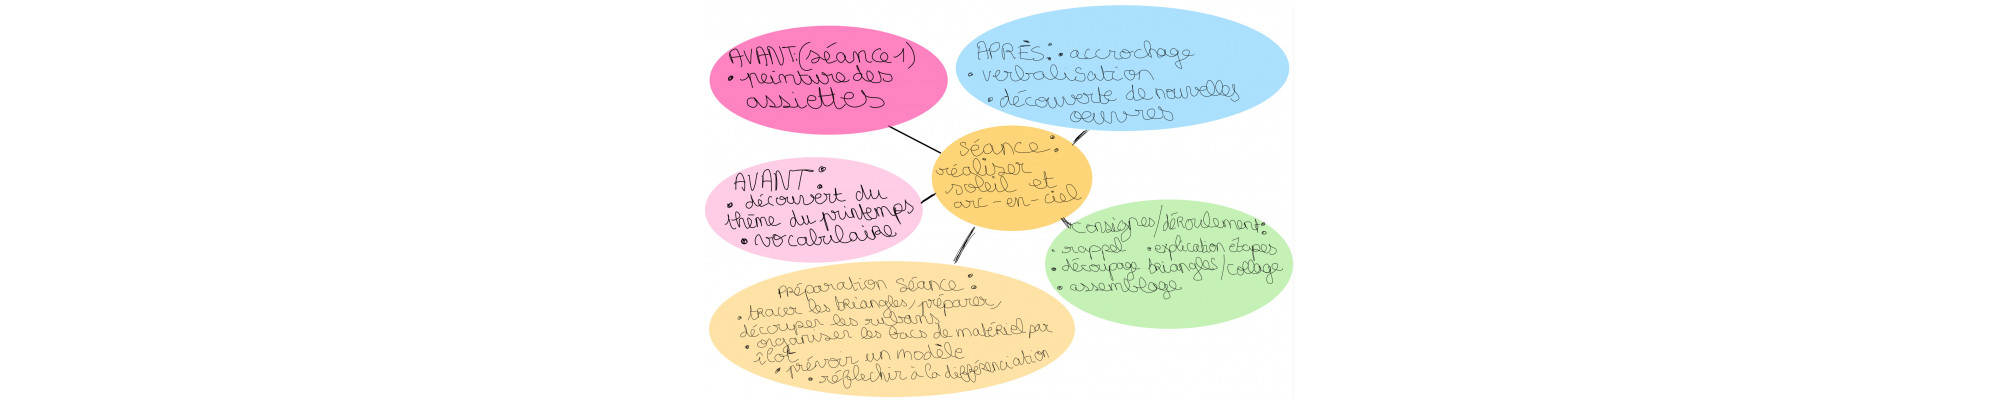 AVANT: (séance 1)
• peinture des
assiettes
APRÈS: • accrochage
• verbalisation
• découverte de nouvelles
œuvres
Séance:
réaliser
soleil et
arc-en-ciel
AVANT:
• découvert du
thème du printemps
• vocabulaire
Consignes/déroulement:
• rappel • explication étapes
• découpage triangles/collage
• assemblage
Préparation séance:
• tracer les triangles, préparer,
découper les rubans
• organiser les bacs de matériel par
îlot
• prévoir un modèle
• réflechir à la différenciation